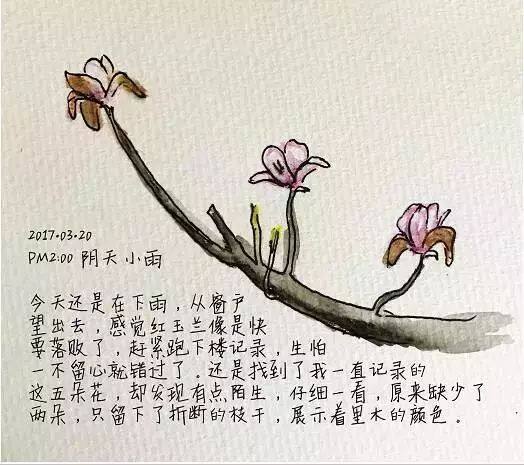 2017.03.20
PM2:00 阴天小雨
今天还是在下雨，从窗户
望出去，感觉红玉兰像是快
要落败了，赶紧跑下楼记录，生怕
一不留心就错过了。还是找到了我一直记录的
这五朵花，却发现有点陌生，仔细一看，原来缺少了
两朵，只留下了折断的枝干，展示着里木的颜色。